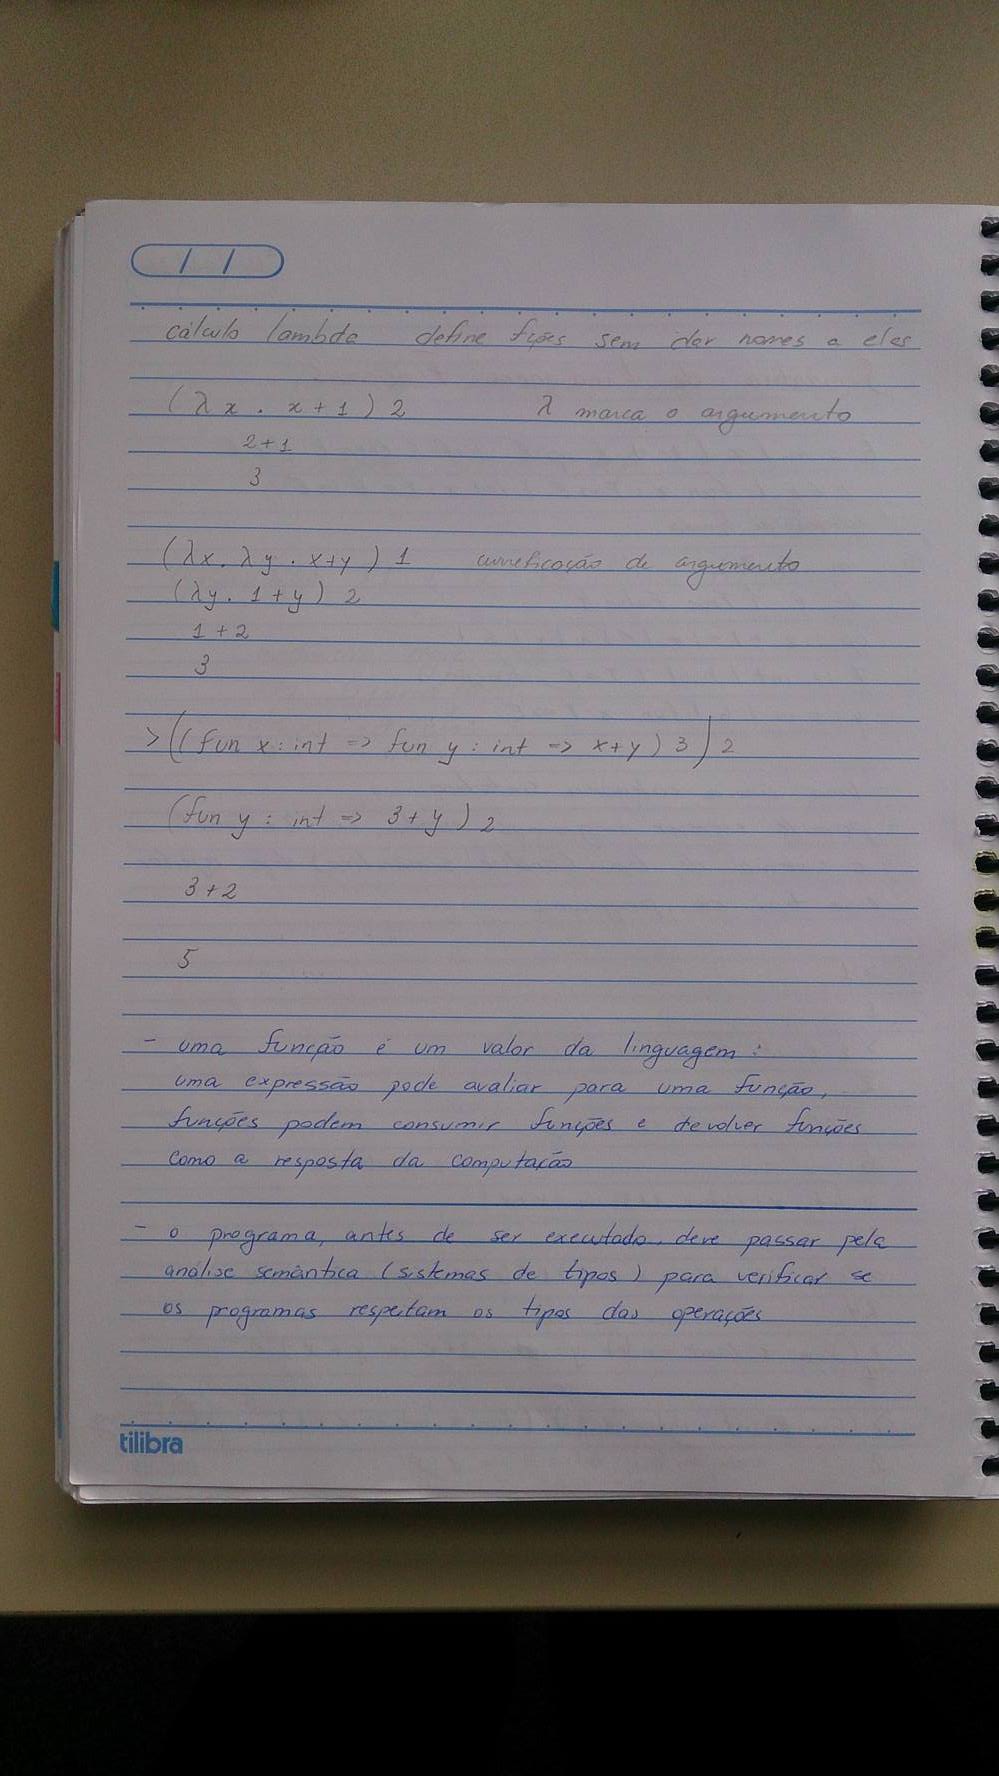 cálculo lambda define fições sem dar nomes a elas
(λx . x+1) 2 λ marca o argumento
2+1
3
(λx. λy . x+y) 1 currificação de argumento
(λy. 1+y) 2
1+2
3
> ((fun x : int => fun y : int => x+y) 3) 2
(fun y : int => 3+y) 2
3+2
5
- uma função é um valor da linguagem:
uma expressão pode avaliar para uma função,
funções podem consumir funções e devolver funções
como a resposta da computação
- o programa, antes de ser executado, deve passar pela
análise semântica (sistemas de tipos) para verificar se
os programas respeitam os tipos das operações
tilibra